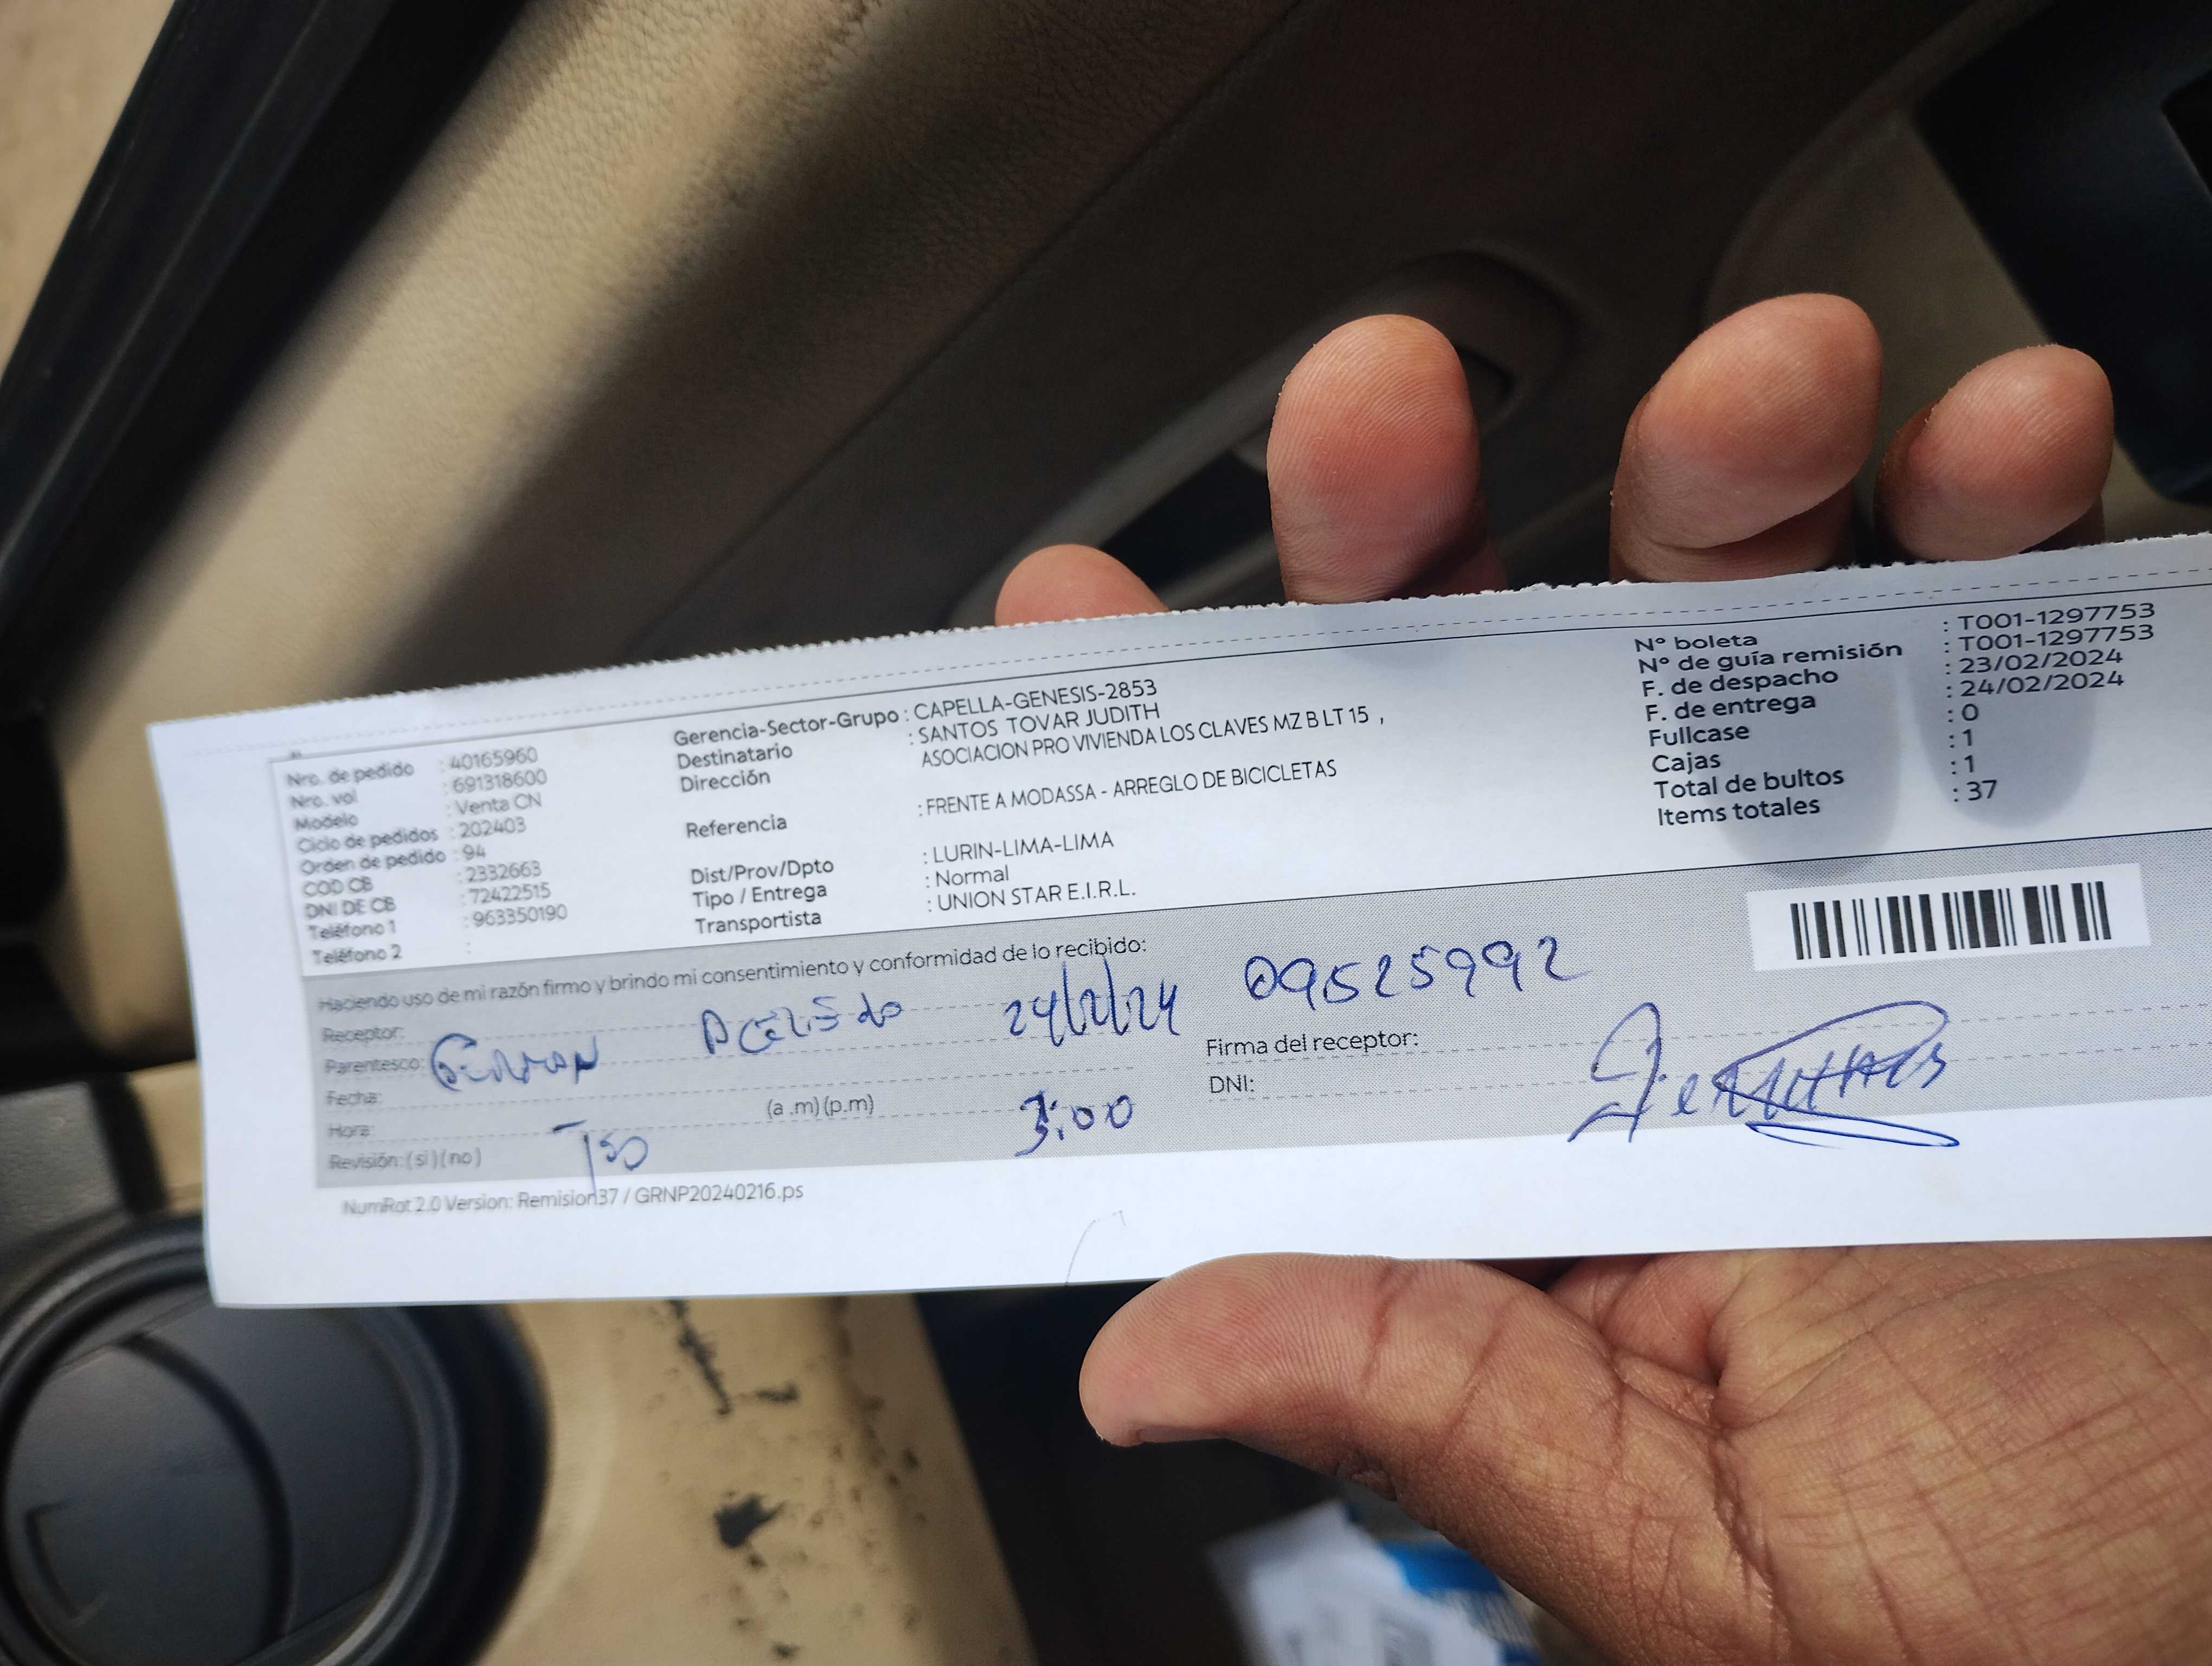 Nro. de pedido : 40165960
Nro. vol : 691318600
Modelo : Venta CN
Ciclo de pedidos : 202403
Orden de pedido : 94
COD CB : 2332663
DNI DE CB : 72422515
Teléfono 1 : 963350190
Teléfono 2 :
Gerencia-Sector-Grupo : CAPELLA-GENESIS-2853
Destinatario : SANTOS TOVAR JUDITH
Dirección ASOCIACION PRO VIVIENDA LOS CLAVES MZ B LT 15 ,
Referencia : FRENTE A MODASSA - ARREGLO DE BICICLETAS
Dist/Prov/Dpto : LURIN-LIMA-LIMA
Tipo / Entrega : Normal
Transportista : UNION STAR E.I.R.L.
N° boleta : T001-1297753
N° de guía remisión : T001-1297753
F. de despacho : 23/02/2024
F. de entrega : 24/02/2024
Fullcase : 0
Cajas : 1
Total de bultos : 1
Items totales : 37
Haciendo uso de mi razón firmo y brindo mi consentimiento y conformidad de lo recibido:
Receptor:
Parentesco:
24/2/24
09525992
Fecha:
Hora: (a .m) (p.m)
3:00
Revisión: ( si ) ( no )
Firma del receptor:
DNI:
NumRot 2.0 Version: Remision37 / GRNP20240216.ps